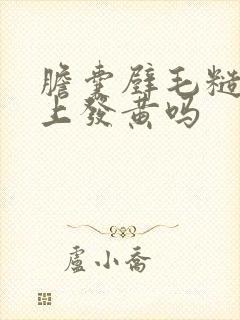 膽囊壁毛糙
上發黃嗎
盧小喬